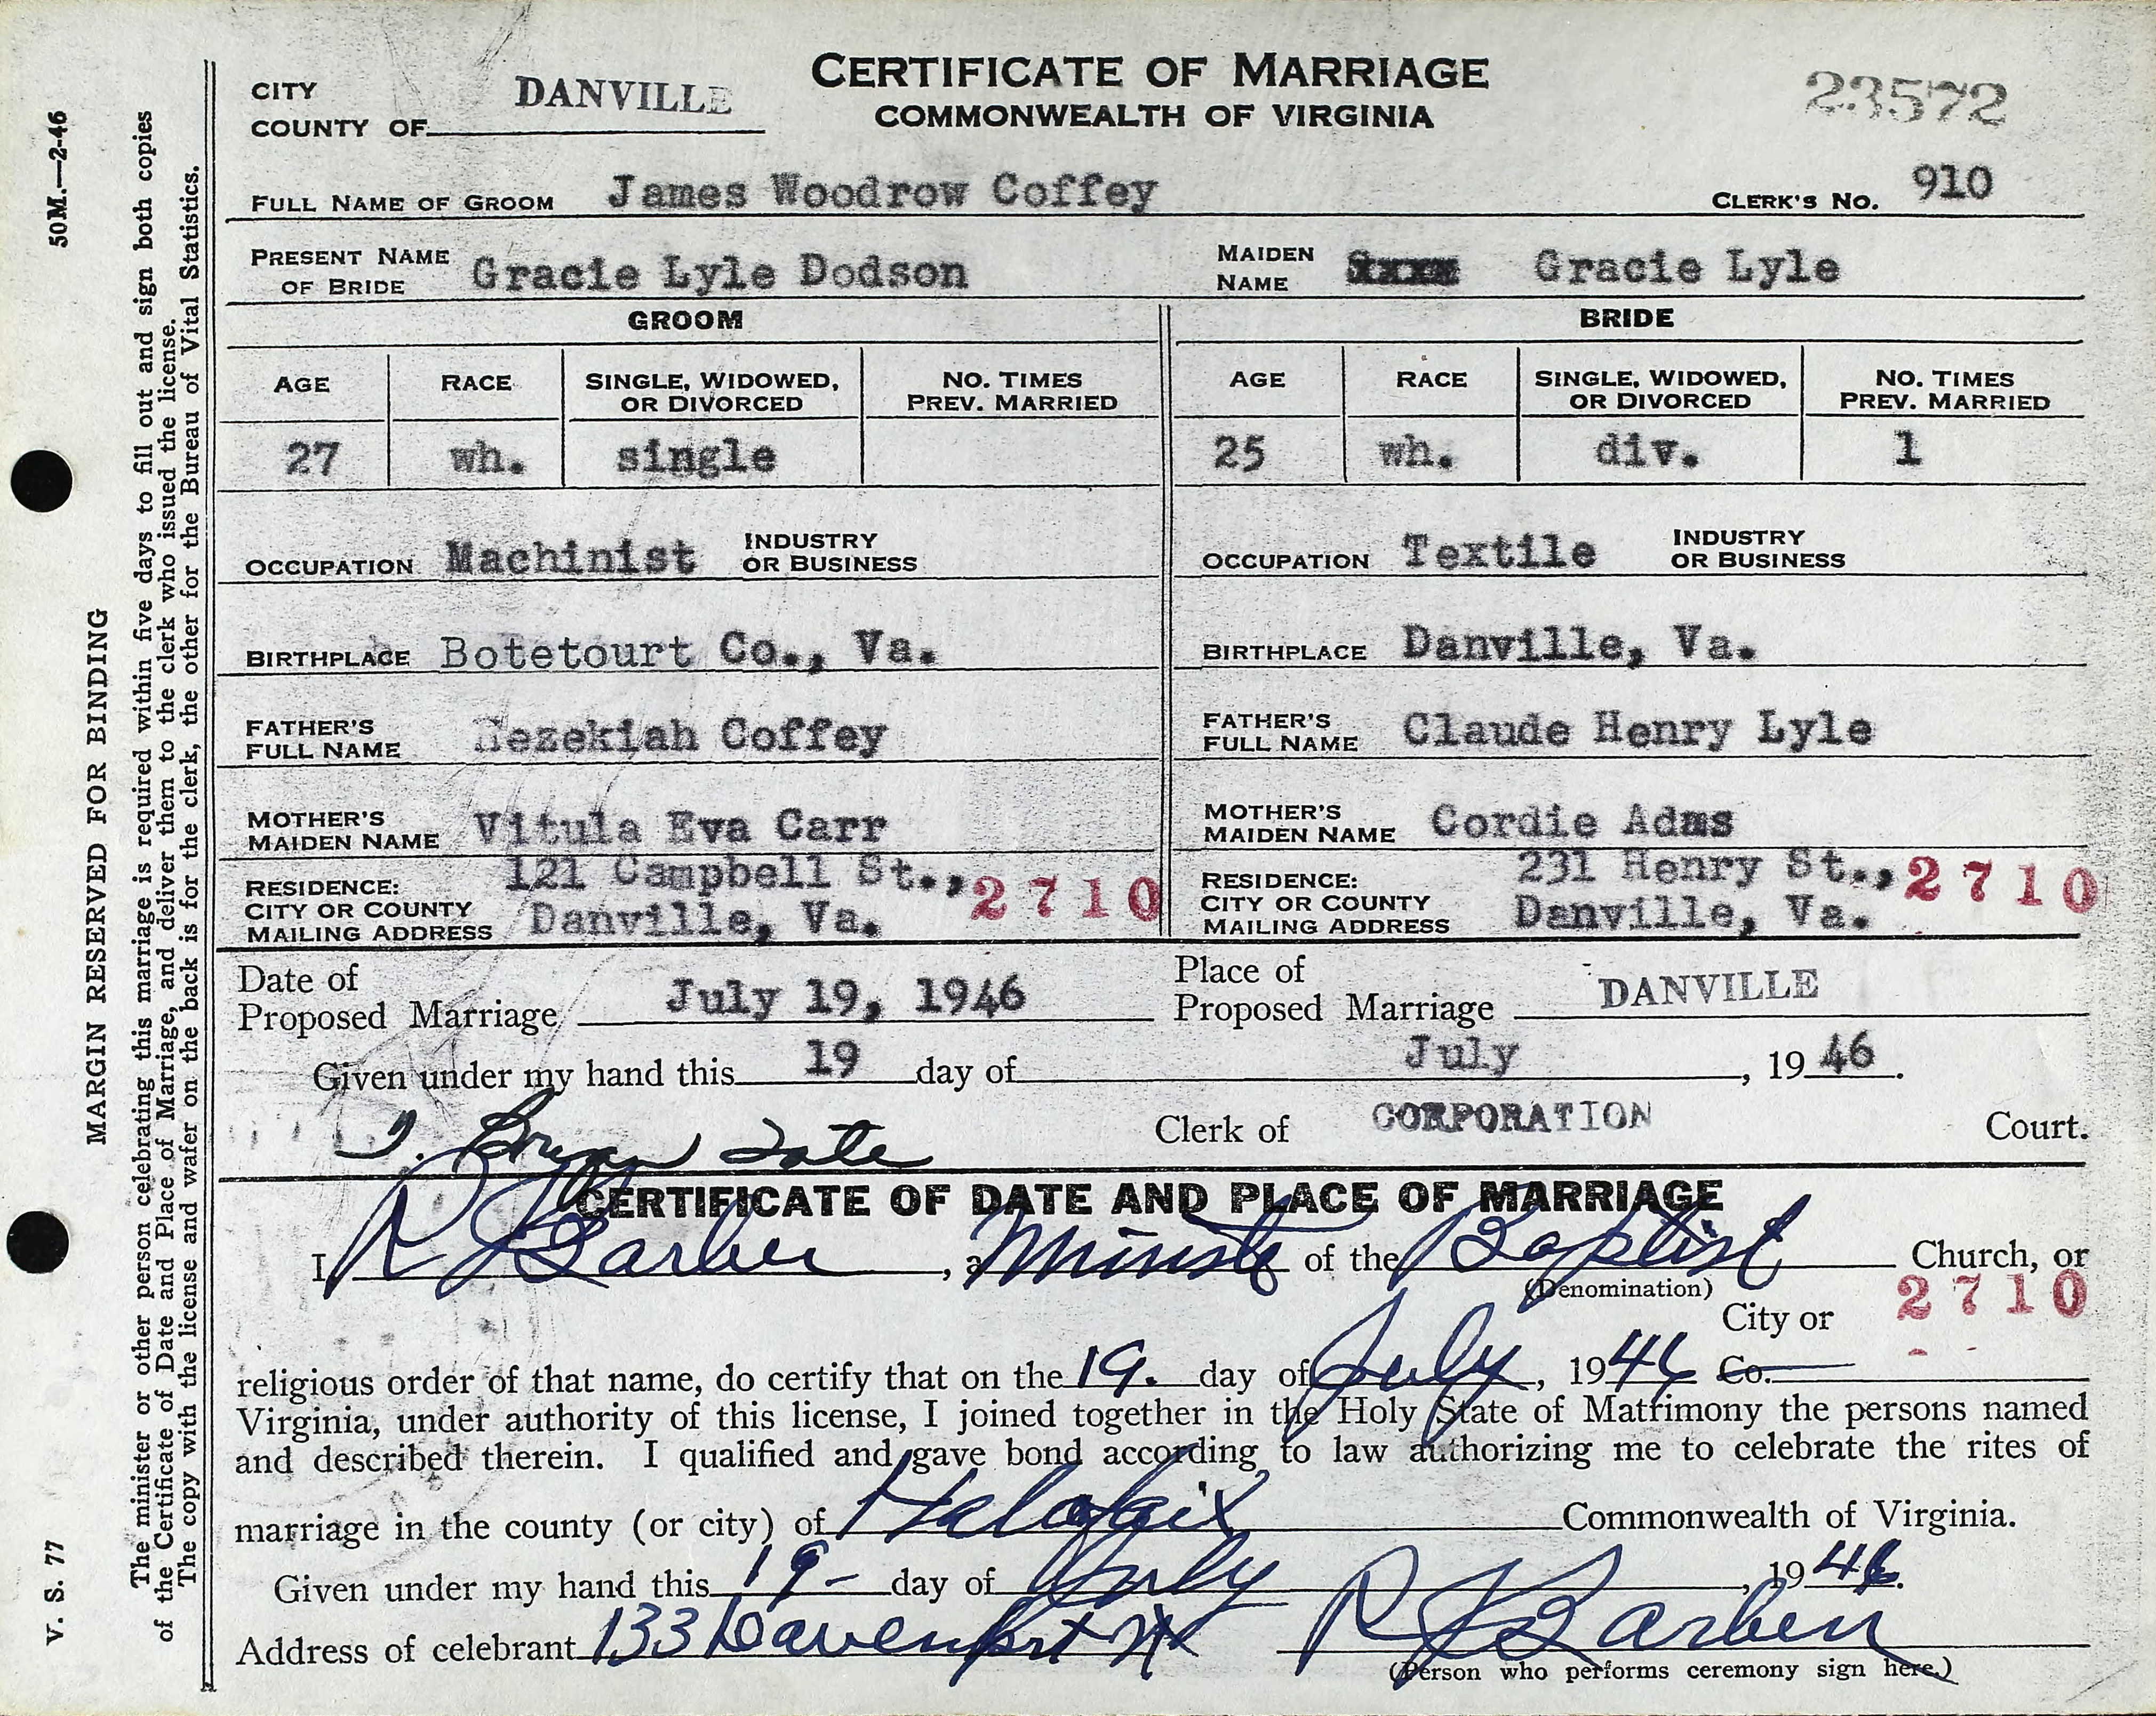 CERTIFICATE OF MARRIAGE
COMMONWEALTH OF VIRGINIA
23572
CITY
COUNTY OF DANVILLE
FULL NAME OF GROOM James Woodrow Coffey CLERK'S NO. 910
PRESENT NAME OF BRIDE Gracie Lyle Dodson MAIDEN NAME Gracie Lyle
GROOM BRIDE
AGE RACE SINGLE, WIDOWED, OR DIVORCED NO. TIMES PREV. MARRIED AGE RACE SINGLE, WIDOWED, OR DIVORCED NO. TIMES PREV. MARRIED
27 wh. single 25 wh. div. 1
OCCUPATION Machinist INDUSTRY OR BUSINESS OCCUPATION Textile INDUSTRY OR BUSINESS
BIRTHPLACE Botetourt Co., Va. BIRTHPLACE Danville, Va.
FATHER'S FULL NAME Hezekiah Coffey FATHER'S FULL NAME Claude Henry Lyle
MOTHER'S MAIDEN NAME Vitula Eva Carr MOTHER'S MAIDEN NAME Cordie Adms
RESIDENCE: CITY OR COUNTY MAILING ADDRESS 121 Campbell St., Danville, Va. 2710 RESIDENCE: CITY OR COUNTY MAILING ADDRESS 231 Henry St., Danville, Va. 2710
Date of Proposed Marriage July 19, 1946 Place of Proposed Marriage DANVILLE
Given under my hand this 19 day of July, 1946.
T. Bryan Tate Clerk of CORPORATION Court.
CERTIFICATE OF DATE AND PLACE OF MARRIAGE
I, R J Barber, a Minister of the Baptist Church, or
(Denomination)
City or 2710
religious order of that name, do certify that on the 19. day of July, 1946 Co.
Virginia, under authority of this license, I joined together in the Holy State of Matrimony the persons named
and described therein. I qualified and gave bond according to law authorizing me to celebrate the rites of
marriage in the county (or city) of Halafaix Commonwealth of Virginia.
Given under my hand this 19- day of July, 1946.
Address of celebrant 133 Davenport St R J Barber
(Person who performs ceremony sign here.)
50M.—2-46
MARGIN RESERVED FOR BINDING
V. S. 77
The minister or other person celebrating this marriage is required within five days to fill out and sign both copies
of the Certificate of Date and Place of Marriage, and deliver them to the clerk who issued the license.
The copy with the license and wafer on the back is for the clerk, the other for the Bureau of Vital Statistics.